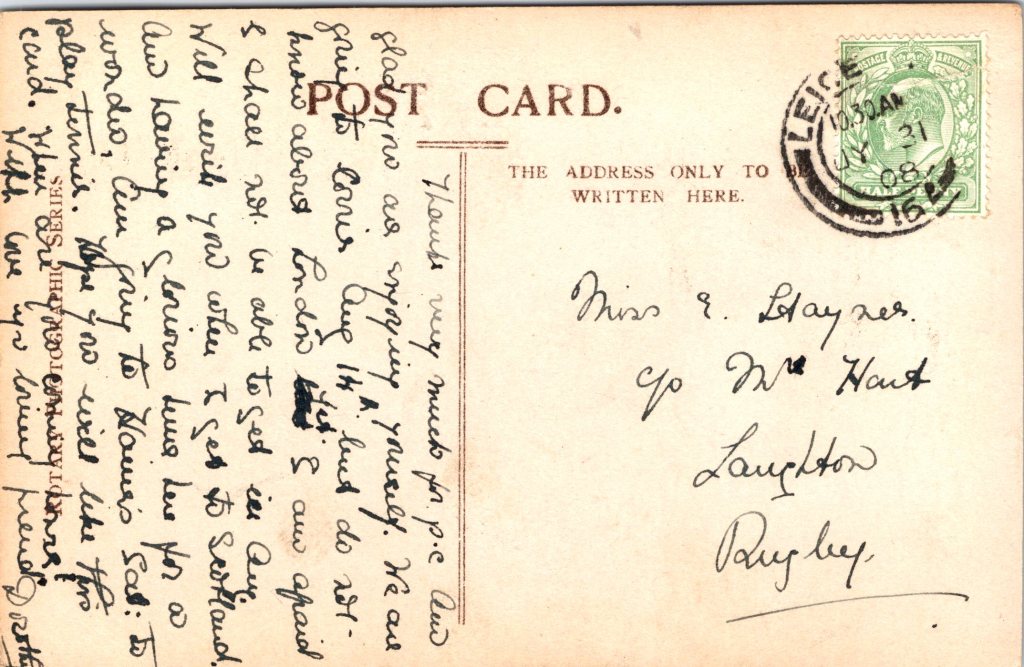 POST CARD.
THE ADDRESS ONLY TO BE
WRITTEN HERE.
LEICE
10.30 AM
JY 31
08
POSTAGE REVENUE
Miss E. Haynes.
c/o Mrs Hart
Laughton
Rugby.
Thanks very much for p.c Am
glad you are enjoying yourself. We are
going to Aug 14th. but do not
know about London yet. I am afraid
I shall not be able to get in Aug.
Will write you when I get to Scotland.
Am having a glorious time here for a
wonder, Am going to Sat: to
play tennis. Hope you will like this
card. When are you coming home?
With love your loving friend
ROTARY PHOTOGRAPHIC SERIES